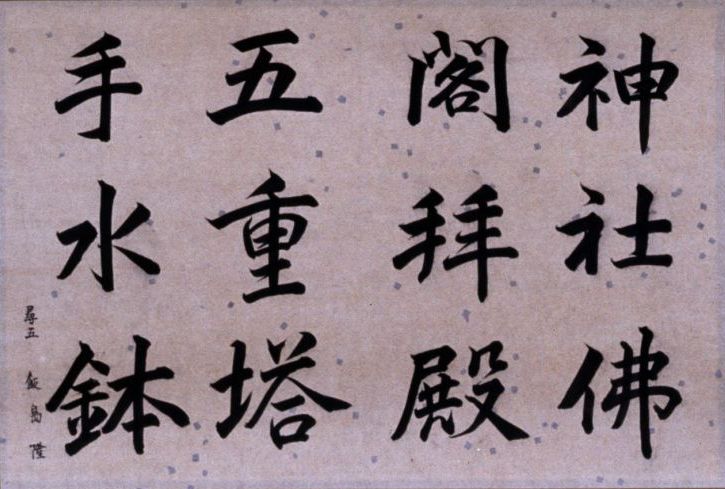 神社佛
閣拝殿
五重塔
手水鉢
尋五 飯島隆